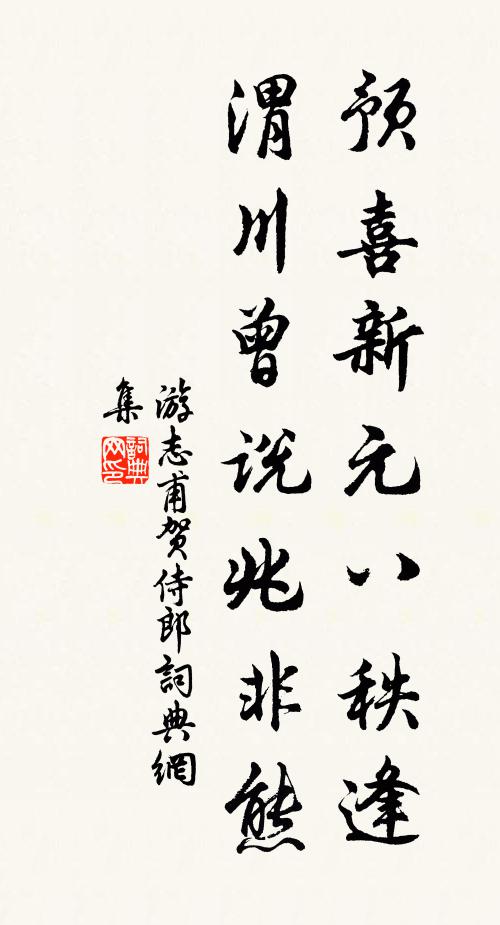 预喜新元八秩逢
渭川曾说兆非熊
游志甫贺侍郎詞典網
集
詞典网印